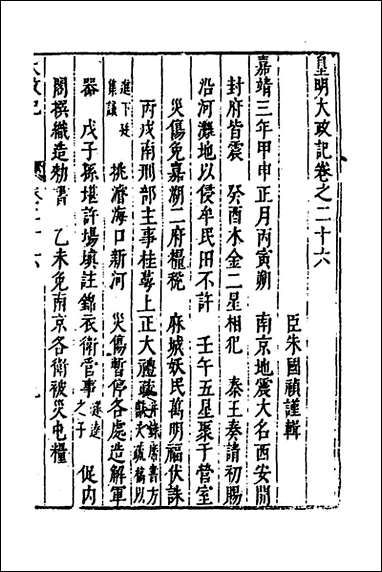 皇明大政記卷之二十六
臣朱國禎謹輯
嘉靖三年甲申正月丙寅朔　南京地震大名西安開
封府皆震　癸酉水金二星相犯　秦王奏請初賜
沿河灘地以侵牟民田不許　壬午五星聚于營室
災傷免嘉湖二府糧稅　麻城妖民萬明福伏誅
丙戌南刑部主事桂萼上正大禮疏并錄席書方獻夫疏稿以
進下廷集議　挑濬海口新河　災傷暫停各處造解軍
器　戊子孫堪許瑒填註錦衣衛管事燧逵之子　促內
閣撰織造勅書　乙未免南京各衛被災屯糧
大政記　卷二十六